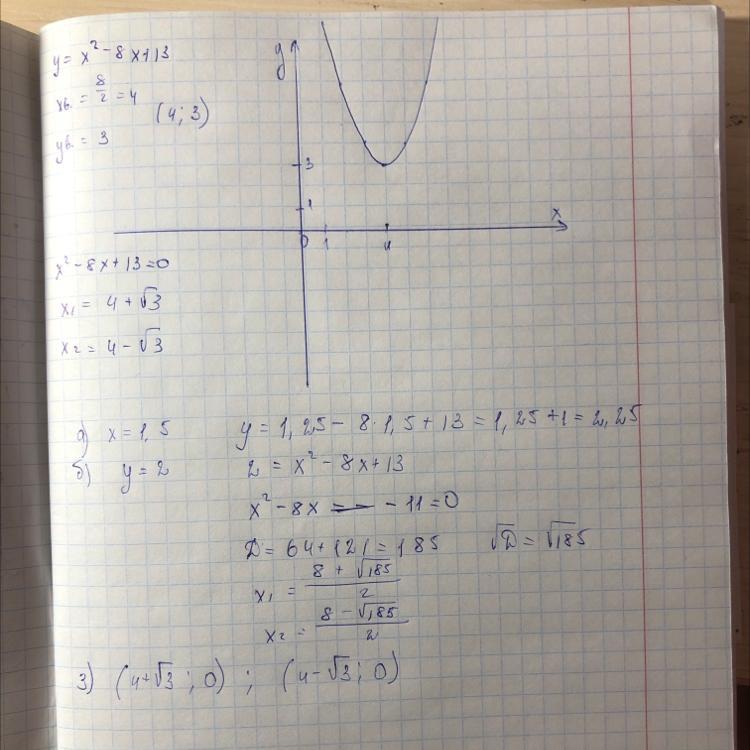 y = x² - 8x+13
xв. = 8/2 = 4
(4; 3)
yв. = 3
y
3
1
x
0 1 4
x² - 8x + 13 = 0
x₁ = 4 + √3
x₂ = 4 - √3
а) x = 1,5 y = 1,25 - 8·1,5 + 13 = 1,25 + 1 = 2,25
б) y = 2 2 = x² - 8x + 13
x² - 8x - 11 = 0
D = 64 + 121 = 185 √D = √185
x₁ = (8 + √185)/2
x₂ = (8 - √185)/2
3) (4+√3 ; 0) ; (4-√3 ; 0)